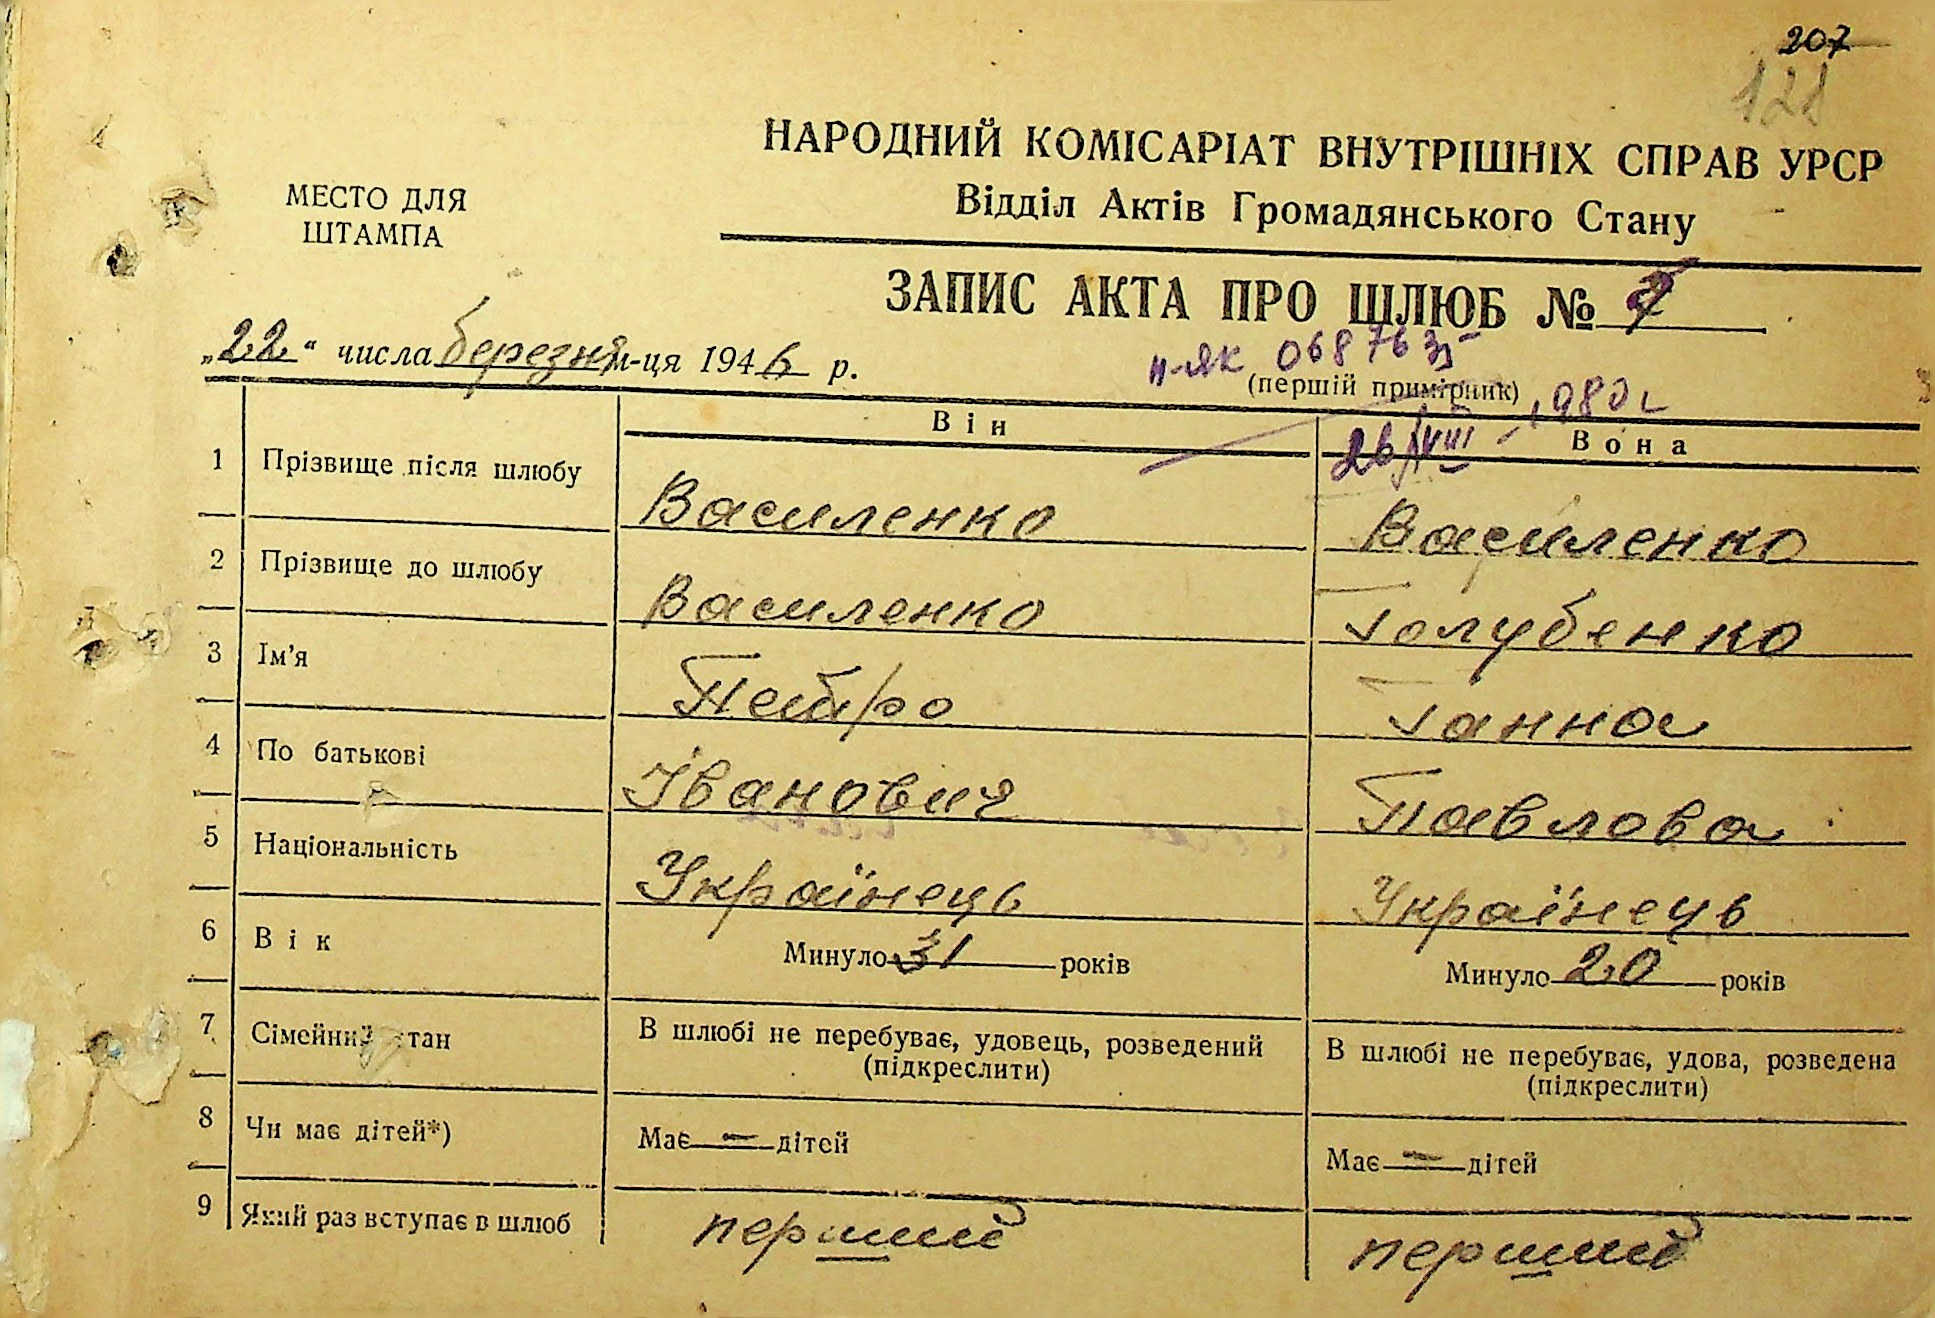 207
121
НАРОДНИЙ КОМІСАРІАТ ВНУТРІШНІХ СПРАВ УРСР
Відділ Актів Громадянського Стану
МЕСТО ДЛЯ
ШТАМПА
ЗАПИС АКТА ПРО ШЛЮБ № 7
„22“ числа березня м-ця 1946 р.
ІІ-ЯК 068763
(першій примірник)
26/VIII - 1980 г
Він Вона
1 Прізвище після шлюбу Василенко Василенко
2 Прізвище до шлюбу Василенко Голубенко
3 Ім'я Петро Ганна
4 По батькові Іванович Павлова
5 Національність Українець Українець
6 Вік Минуло 31 років Минуло 20 років
7 Сімейний стан В шлюбі не перебуває, удовець, розведений В шлюбі не перебуває, удова, розведена
(підкреслити) (підкреслити)
8 Чи має дітей*) Має — дітей Має — дітей
9 Який раз вступає в шлюб перший перший